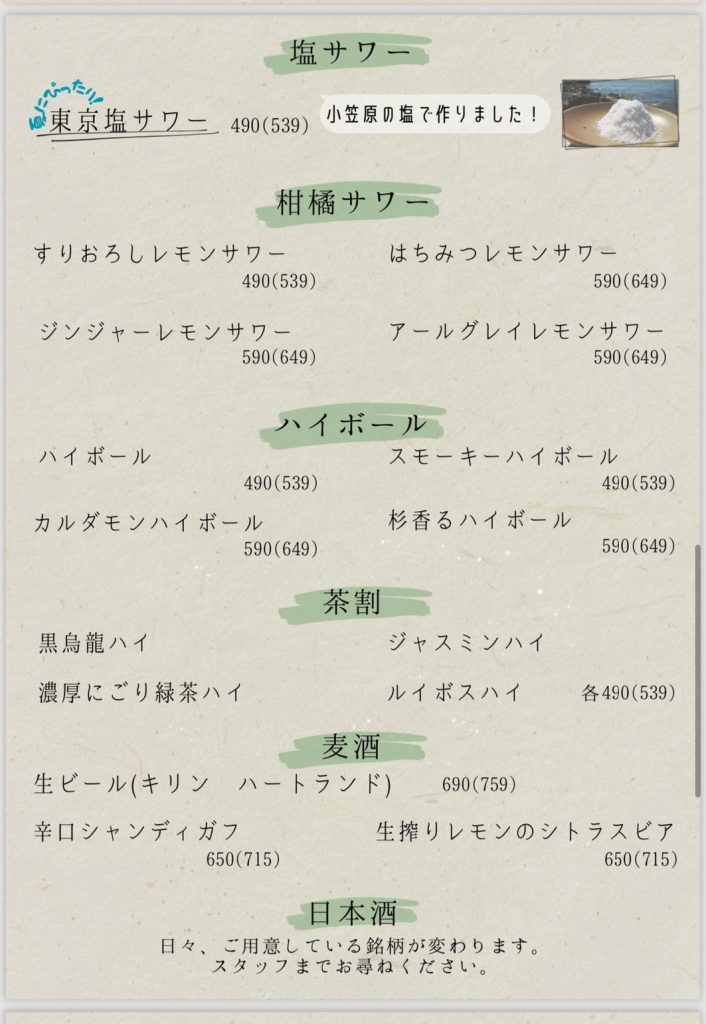 塩サワー
夏にぴったり!
東京塩サワー 490(539) 小笠原の塩で作りました!
柑橘サワー
すりおろしレモンサワー はちみつレモンサワー
490(539) 590(649)
ジンジャーレモンサワー アールグレイレモンサワー
590(649) 590(649)
ハイボール
ハイボール スモーキーハイボール
490(539) 490(539)
カルダモンハイボール 杉香るハイボール
590(649) 590(649)
茶割
黒烏龍ハイ ジャスミンハイ
濃厚にごり緑茶ハイ ルイボスハイ 各490(539)
麦酒
生ビール(キリン ハートランド) 690(759)
辛口シャンディガフ 生搾りレモンのシトラスビア
650(715) 650(715)
日本酒
日々、ご用意している銘柄が変わります。
スタッフまでお尋ねください。